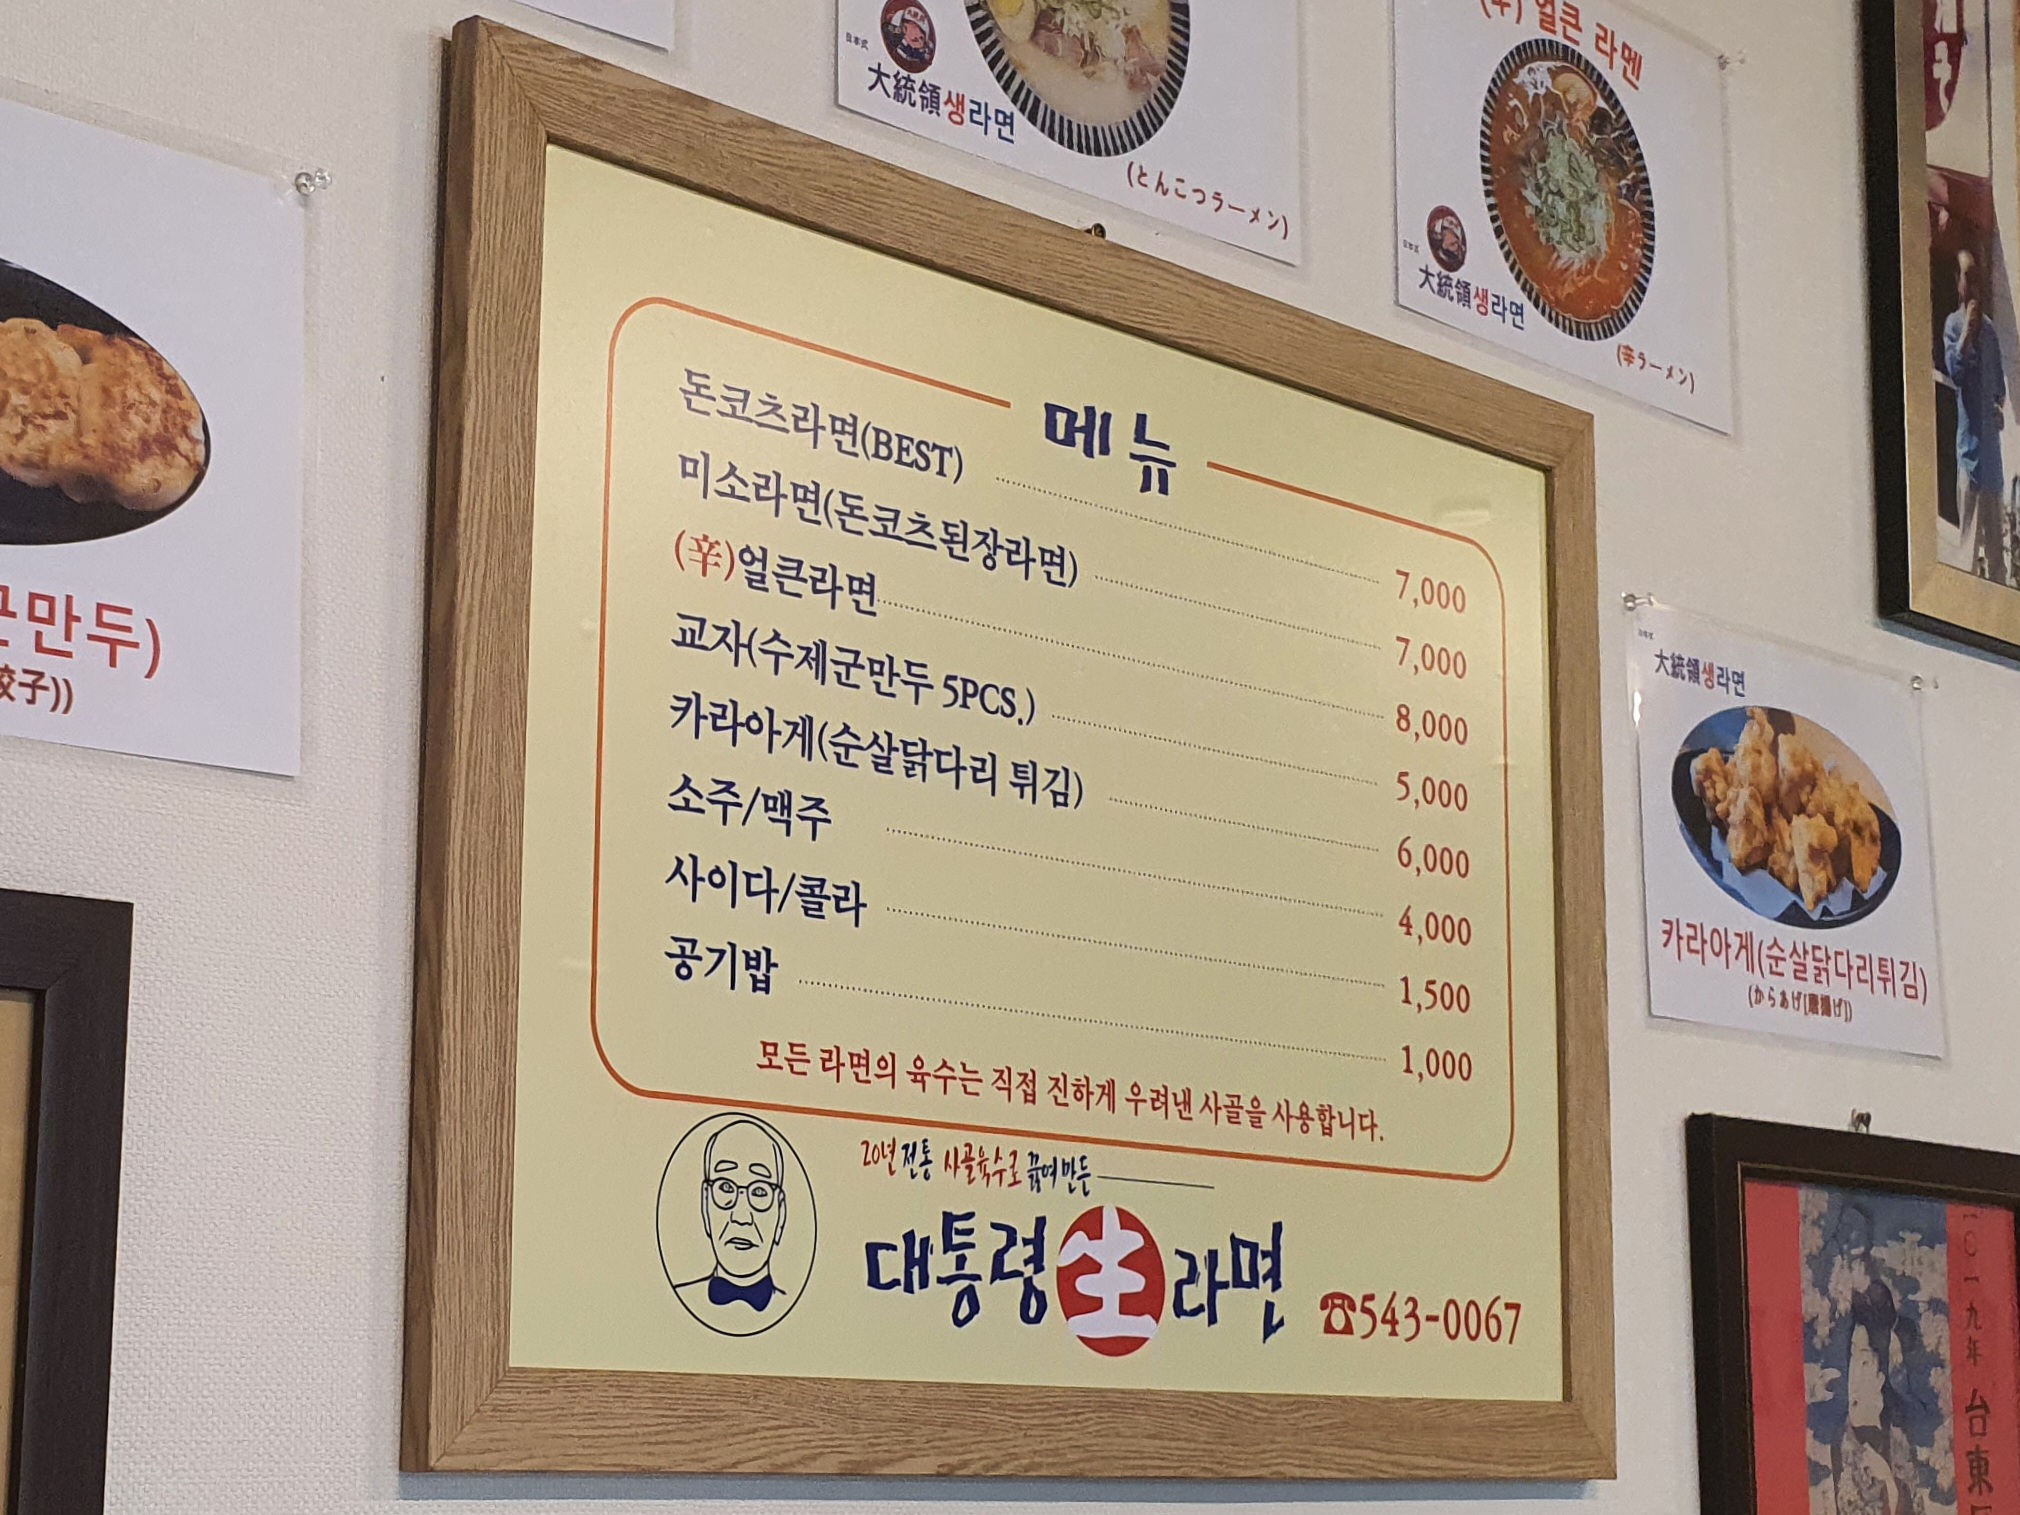 大統領생라면
(とんこつラーメン)
(辛) 얼큰 라멘
大統領생라면
(辛ラーメン)
군만두)
餃子))
메뉴
돈코츠라면(BEST) 7,000
미소라면(돈코츠된장라면) 7,000
(辛)얼큰라면 8,000
교자(수제군만두 5PCS.) 5,000
카라아게(순살닭다리 튀김) 6,000
소주/맥주 4,000
사이다/콜라 1,500
공기밥 1,000
모든 라면의 육수는 직접 진하게 우려낸 사골을 사용합니다.
20년 전통 사골육수로 끓여만든
대통령生라면
☎543-0067
大統領생라면
카라아게(순살닭다리튀김)
(からあげ[唐揚げ])
二〇一九年 台東